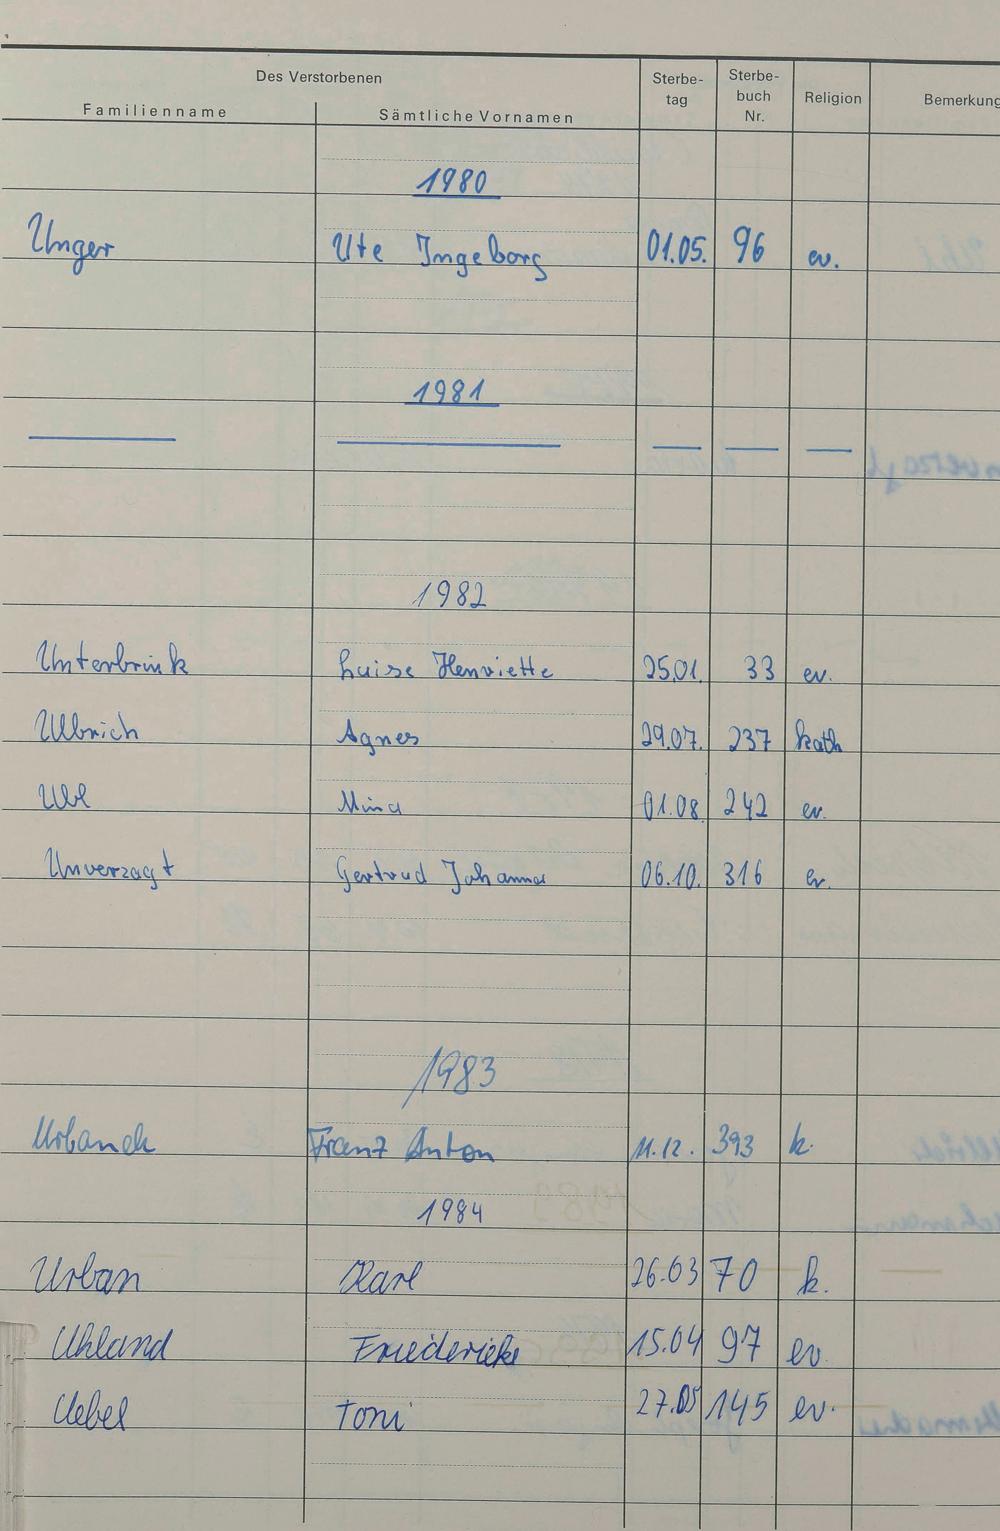 Des Verstorbenen
Familienname Sämtliche Vornamen Sterbe-tag Sterbe-buch Nr. Religion Bemerkung
1980
Unger Ute Ingeborg 01.05. 96 ev.
1981
— — — — —
1982
Unterbrink Luise Henriette 25.01. 33 ev.
Ulbrich Agnes 29.07. 237 kath
Uhl Mina 01.08. 242 ev.
Unverzagt Gertrud Johanna 06.10. 316 ev.
1983
Urbanek Franz Anton 11.12. 393 k.
1984
Urban Karl 26.03 70 k.
Uhland Friederieke 15.04 97 ev.
Uebel Toni 27.05 145 ev.